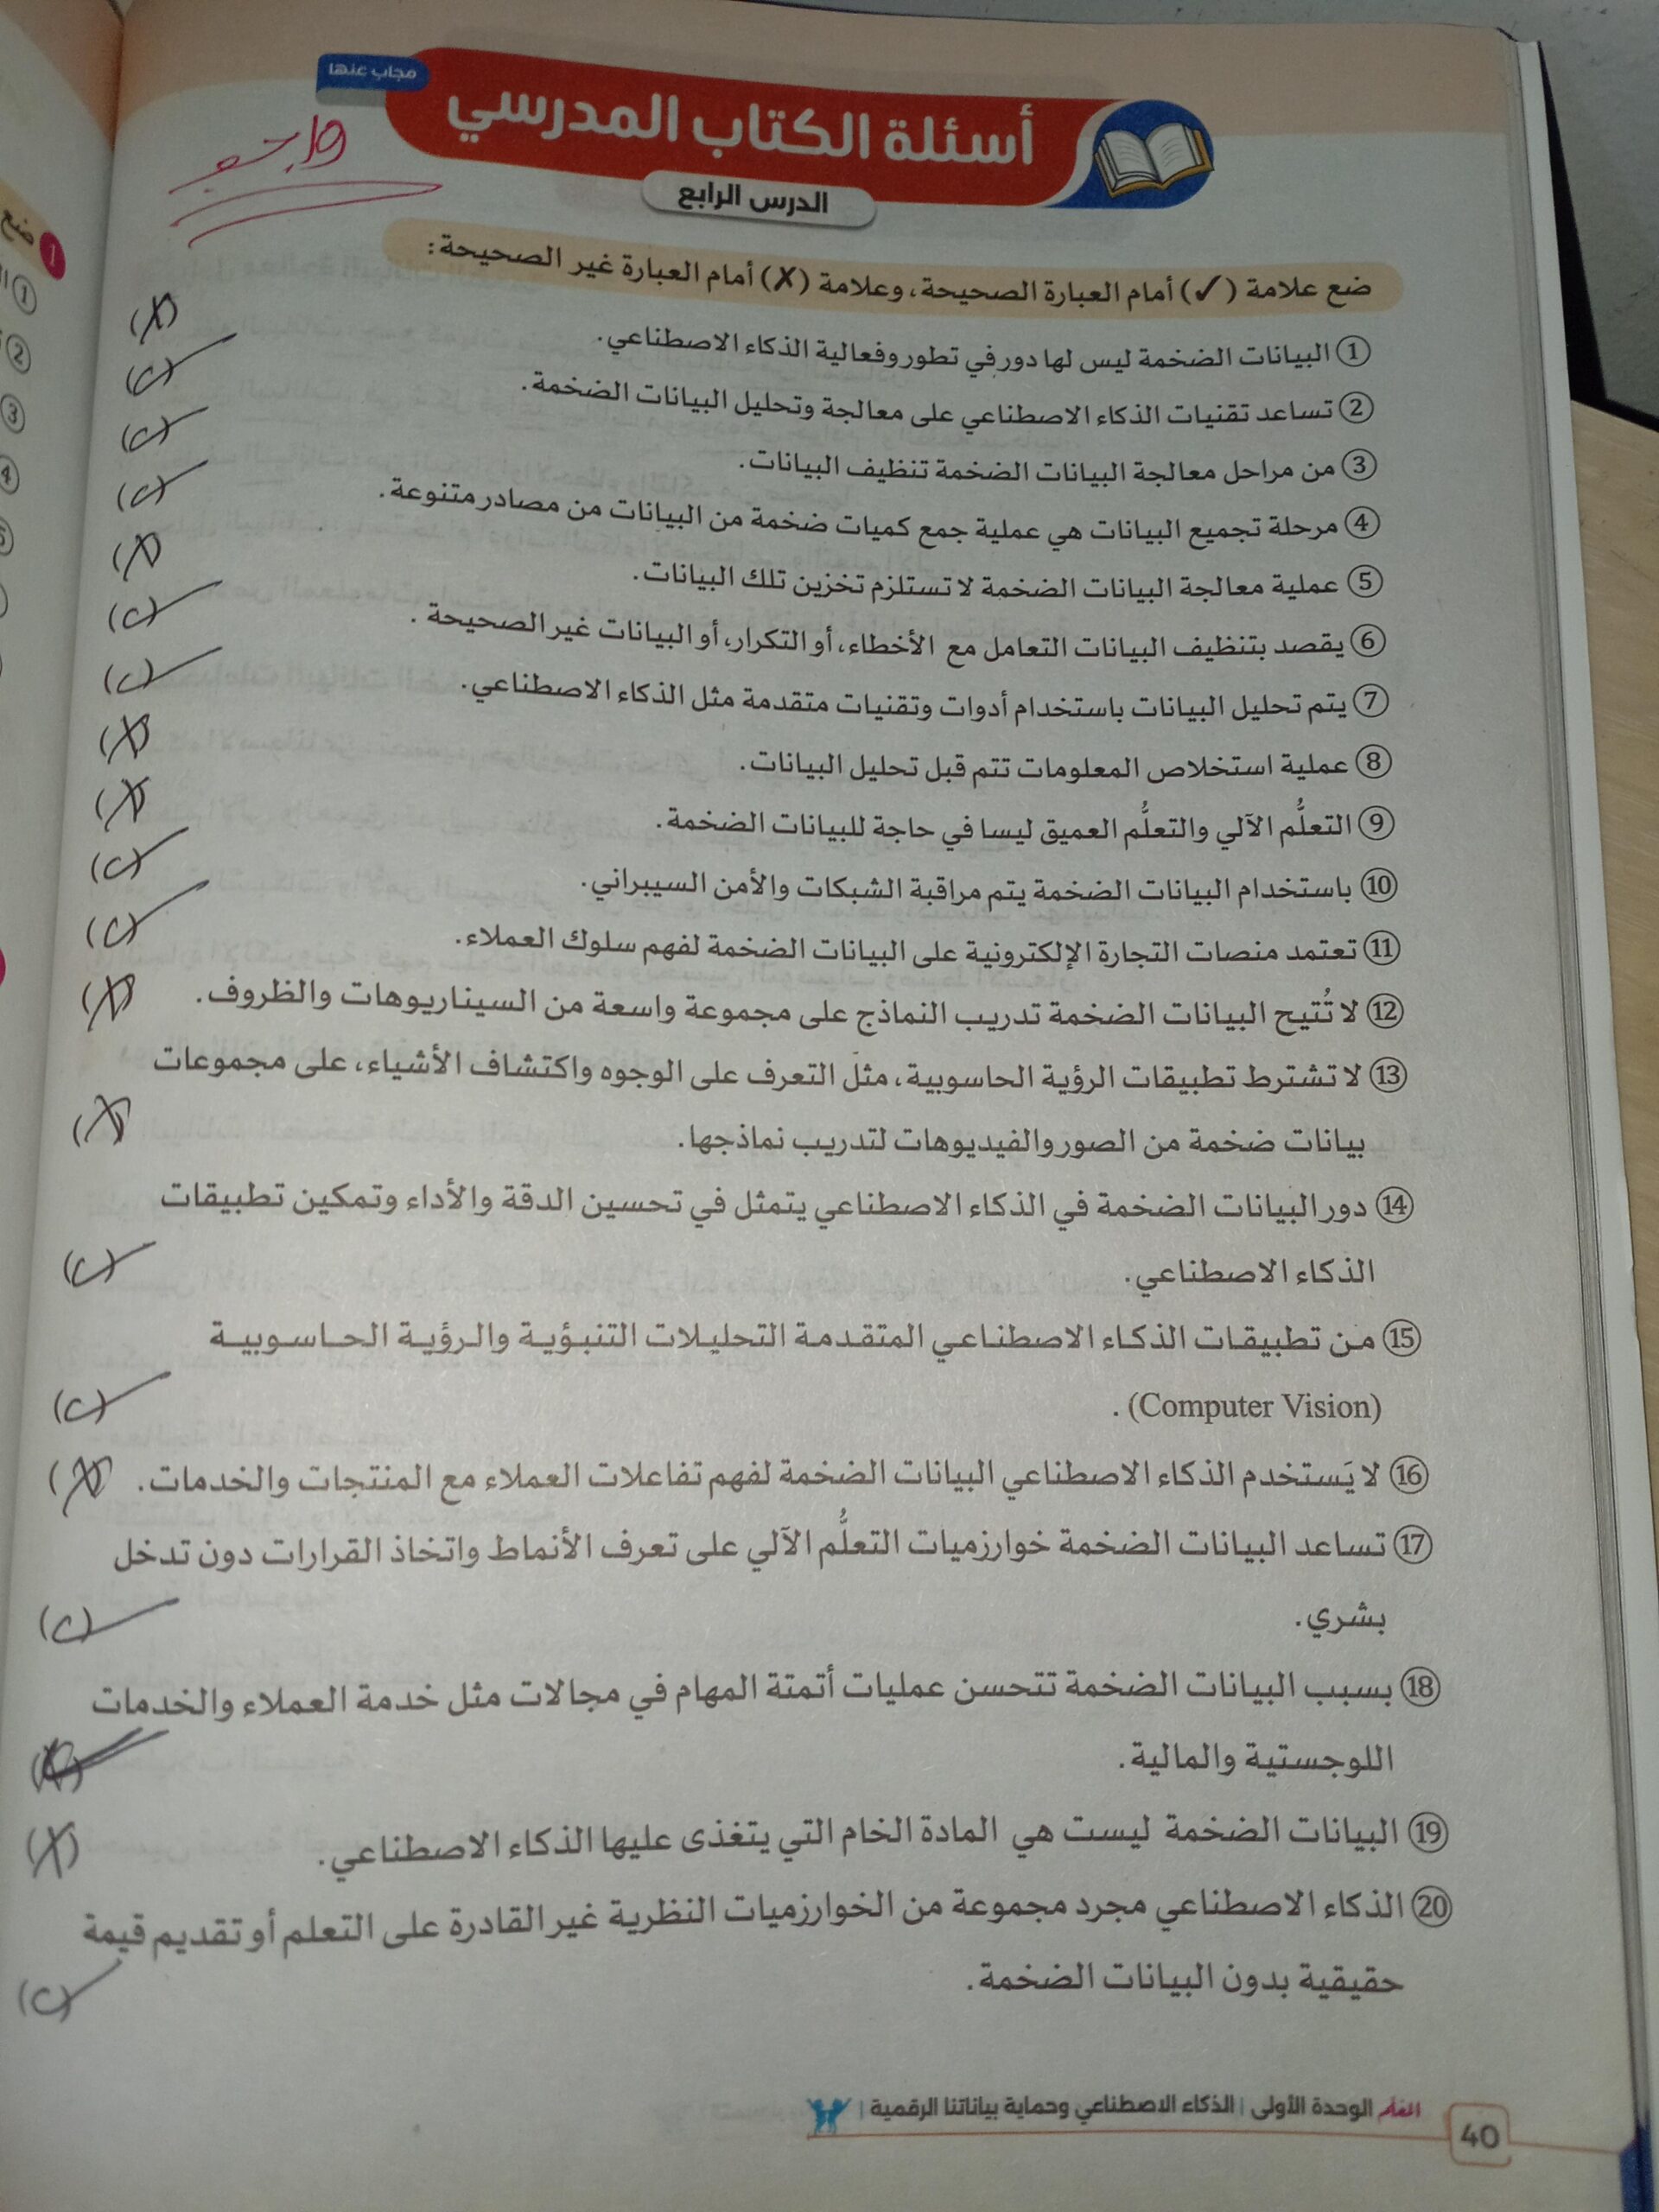 مجاب عنها
أسئلة الكتاب المدرسي
واجب
الدرس الرابع
ضع علامة (✓) أمام العبارة الصحيحة، وعلامة (✗) أمام العبارة غير الصحيحة:
① البيانات الضخمة ليس لها دور في تطور وفعالية الذكاء الاصطناعي. (✗)
② تساعد تقنيات الذكاء الاصطناعي على معالجة وتحليل البيانات الضخمة. (✓)
③ من مراحل معالجة البيانات الضخمة تنظيف البيانات. (✓)
④ مرحلة تجميع البيانات هي عملية جمع كميات ضخمة من البيانات من مصادر متنوعة. (✓)
⑤ عملية معالجة البيانات الضخمة لا تستلزم تخزين تلك البيانات. (✗)
⑥ يقصد بتنظيف البيانات التعامل مع الأخطاء، أو التكرار، أو البيانات غير الصحيحة. (✓)
⑦ يتم تحليل البيانات باستخدام أدوات وتقنيات متقدمة مثل الذكاء الاصطناعي. (✓)
⑧ عملية استخلاص المعلومات تتم قبل تحليل البيانات. (✗)
⑨ التعلُّم الآلي والتعلُّم العميق ليسا في حاجة للبيانات الضخمة. (✗)
⑩ باستخدام البيانات الضخمة يتم مراقبة الشبكات والأمن السيبراني. (✓)
⑪ تعتمد منصات التجارة الإلكترونية على البيانات الضخمة لفهم سلوك العملاء. (✓)
⑫ لا تُتيح البيانات الضخمة تدريب النماذج على مجموعة واسعة من السيناريوهات والظروف. (✗)
⑬ لا تشترط تطبيقات الرؤية الحاسوبية، مثل التعرف على الوجوه واكتشاف الأشياء، على مجموعات
بيانات ضخمة من الصور والفيديوهات لتدريب نماذجها. (✗)
⑭ دور البيانات الضخمة في الذكاء الاصطناعي يتمثل في تحسين الدقة والأداء وتمكين تطبيقات
الذكاء الاصطناعي. (✓)
⑮ من تطبيقات الذكاء الاصطناعي المتقدمة التحليلات التنبؤية والرؤية الحاسوبية
(Computer Vision). (✓)
⑯ لا يَستخدم الذكاء الاصطناعي البيانات الضخمة لفهم تفاعلات العملاء مع المنتجات والخدمات. (✗)
⑰ تساعد البيانات الضخمة خوارزميات التعلُّم الآلي على تعرف الأنماط واتخاذ القرارات دون تدخل
بشري. (✓)
⑱ بسبب البيانات الضخمة تتحسن عمليات أتمتة المهام في مجالات مثل خدمة العملاء والخدمات
اللوجستية والمالية. (✓)
⑲ البيانات الضخمة ليست هي المادة الخام التي يتغذى عليها الذكاء الاصطناعي. (✗)
⑳ الذكاء الاصطناعي مجرد مجموعة من الخوارزميات النظرية غير القادرة على التعلم أو تقديم قيمة
حقيقية بدون البيانات الضخمة. (✓)
المعلم الوحدة الأولى | الذكاء الاصطناعي وحماية بياناتنا الرقمية |
40
ضع
1
①
②
③
④